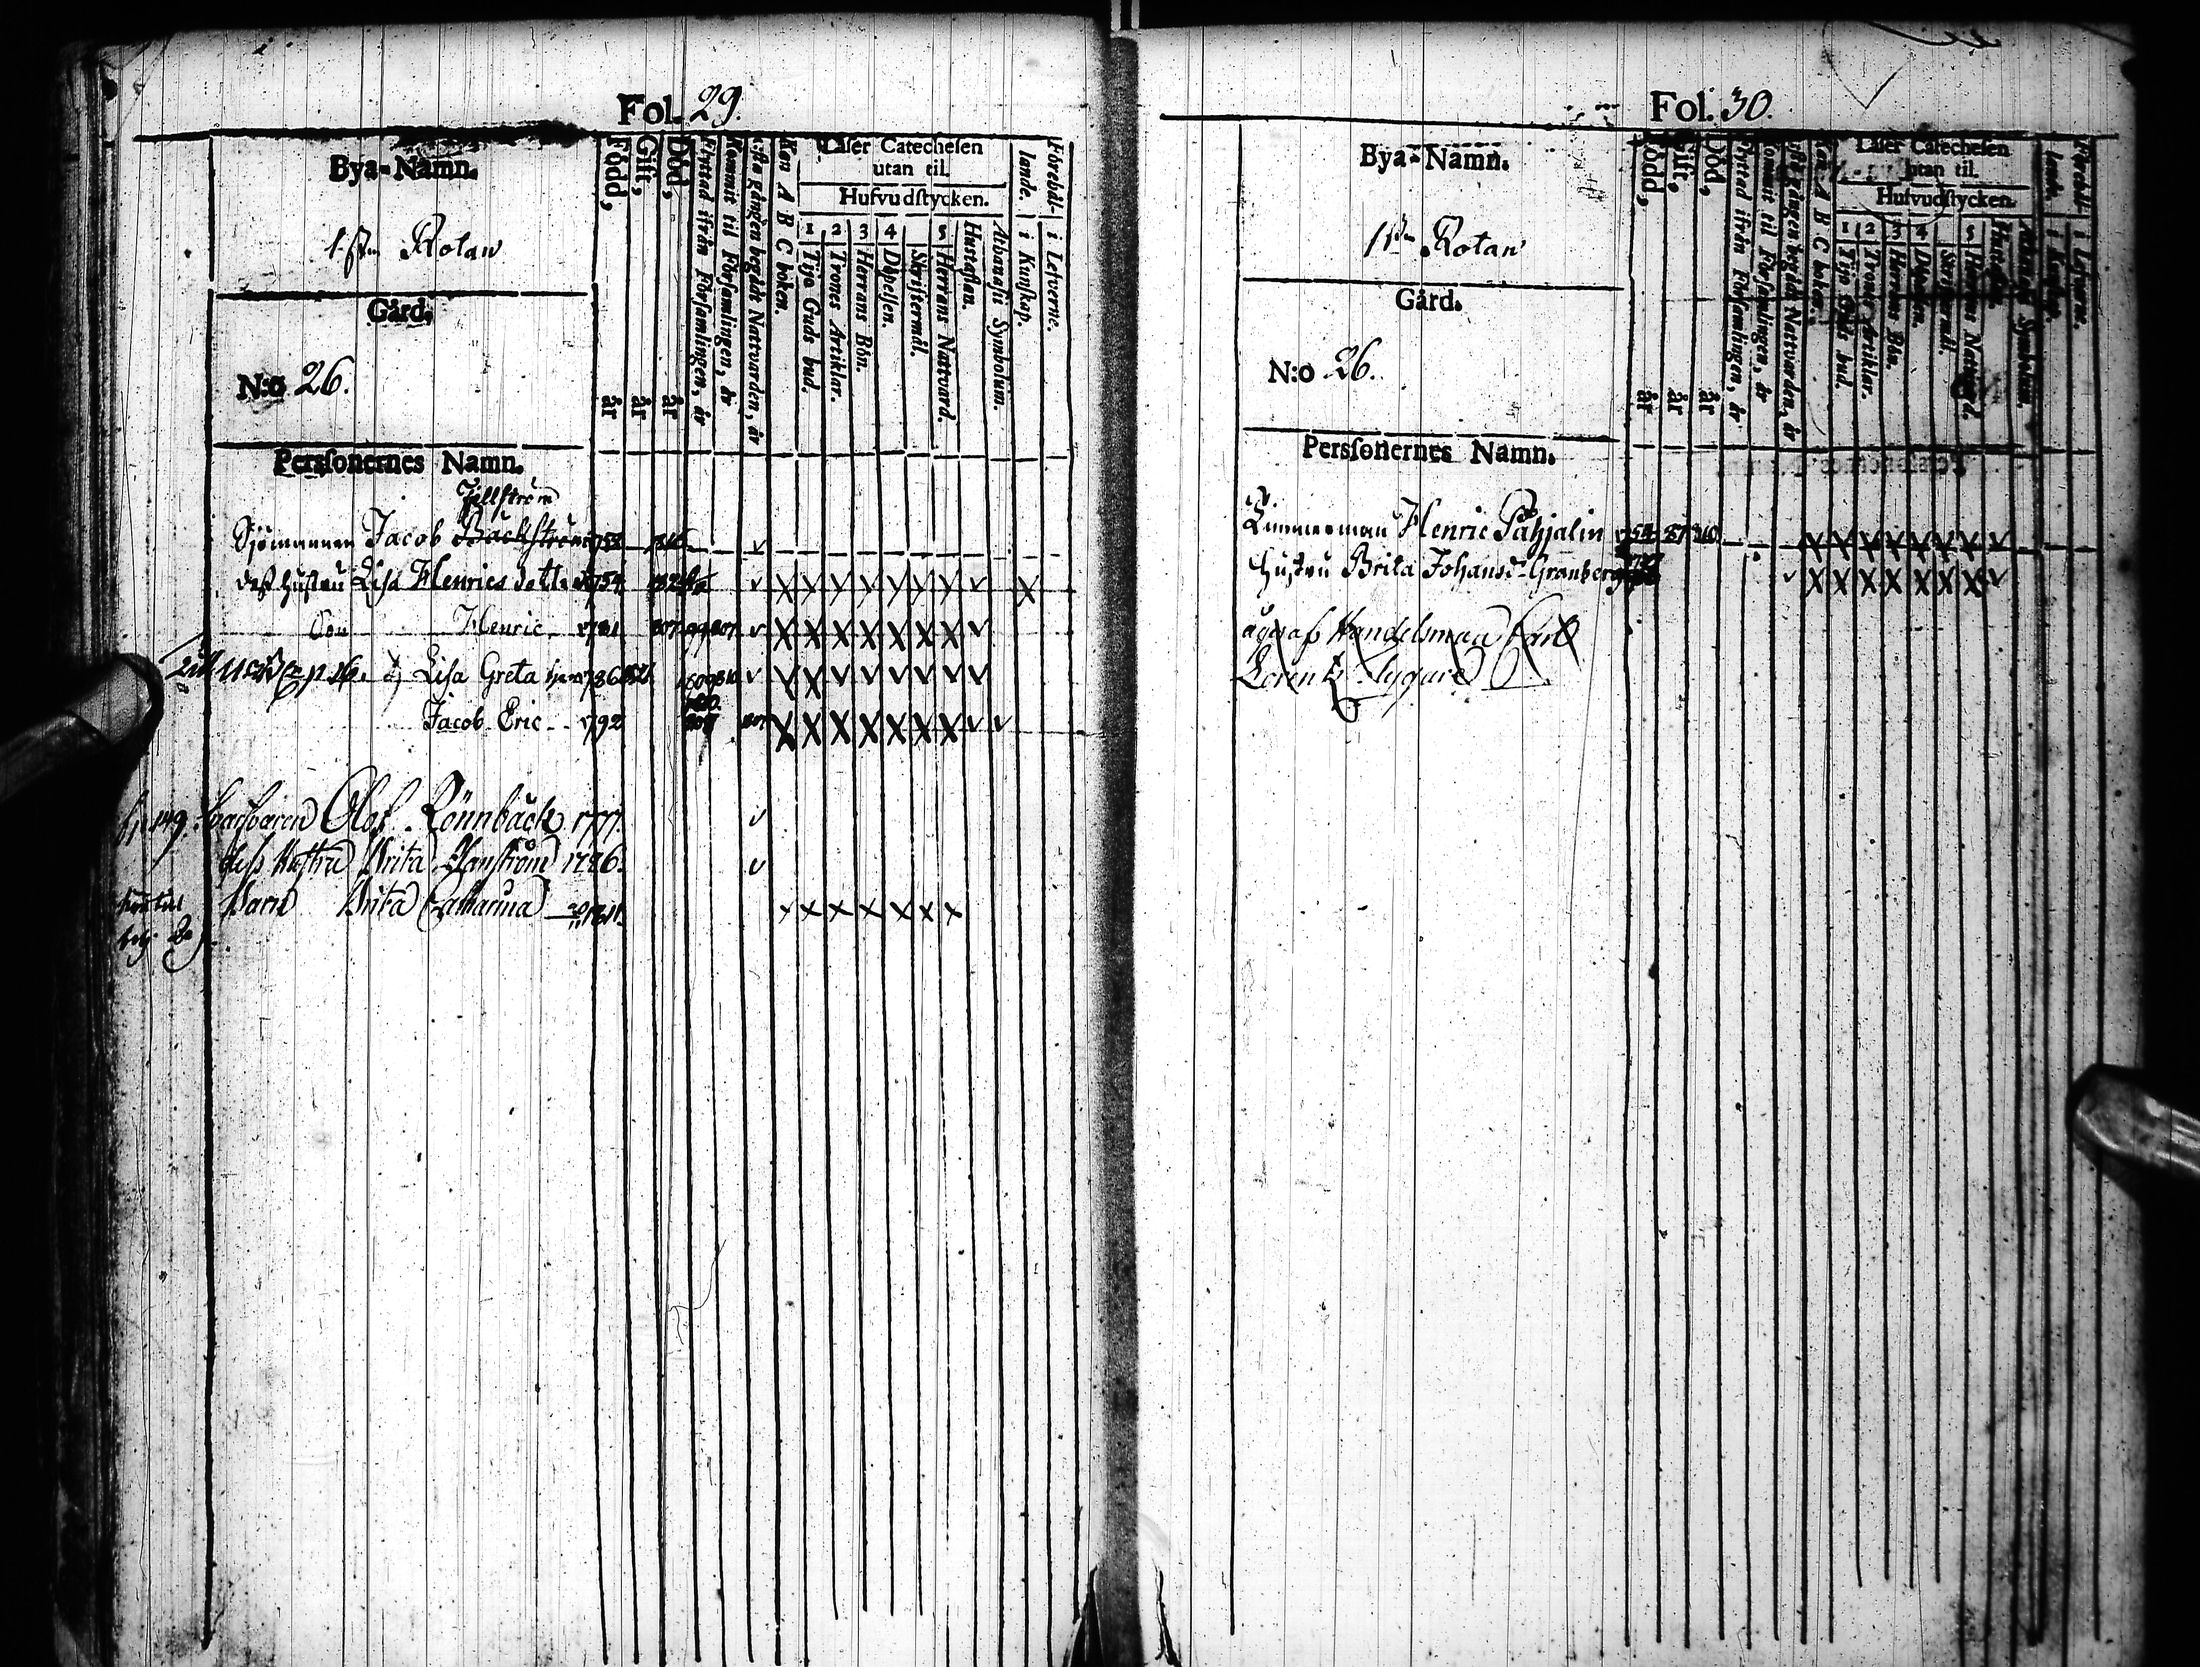 Fol. 29.
Bya-Namn.
1:sta Rotan
Gård.
N:o 26.
Persſonernes Namn.
Född, år
Gift, år
Död, år
Flyttad ifrån Förſamlingen, år
Kommit til Förſamlingen, år
1:ſta gången begådt Nattvarden, år
Kan A B C boken.
Läſer Catecheſen
utan til.
Hufvudſtycken.
1 2 3 4 5
Tijo Guds bud.
Trones Artiklar.
Herrans Bön.
Döpelſen.
Skriftermål.
Herrans Nattvard.
Hustaflan.
Athanaſii Symbolum.
Förehål-
lande.
i Kunſkap.
i Lefverne.
Fjellström
Sjömannen Jacob Bäckström
deſs hustru Lisa Henrics dotter 1754
Son Henric 1781
Lisa Greta 1786
Jacob Eric 1792
Olof Rönnbäck 1777.
deſs Hustru Brita
Barn Brita Catharina
Fol. 30.
Bya-Namn.
1sta Rotan
Gård.
N:o 26.
Persſonernes Namn.
Född, år
Gift, år
Död, år
Flyttad ifrån Förſamlingen, år
Kommit til Förſamlingen, år
1:ſta gången begådt Nattvarden, år
Kan A B C boken.
Läſer Catecheſen
utan til.
Hufvudſtycken.
1 2 3 4 5
Tijo Guds bud.
Trones Artiklar.
Herrans Bön.
Döpelſen.
Skriftermål.
Herrans Nattvard.
Hustaflan.
Athanaſii Symbolum.
Förehål-
lande.
i Kunſkap.
i Lefverne.
Timmerman Henric Påhjalin 1754 87 810
Hustru Brita Johansd. Granberg
äges af Handelsman Carl
Lorentz Nygård